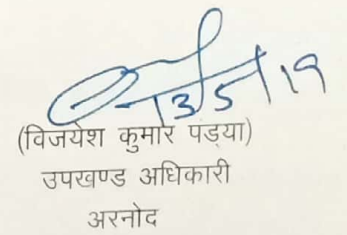 13/5/19
(विजयेश कुमार पंड्या)
उपखण्ड अधिकारी
अरनोद